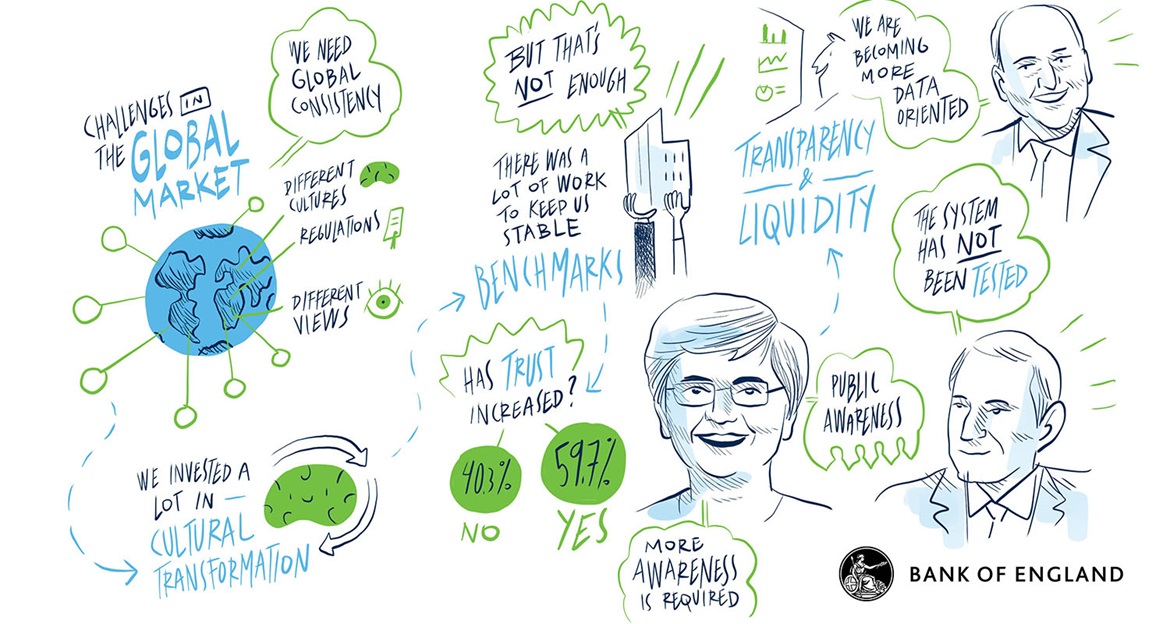 CHALLENGES IN
THE GLOBAL
MARKET
WE NEED
GLOBAL
CONSISTENCY
DIFFERENT
CULTURES
REGULATIONS
DIFFERENT
VIEWS
WE INVESTED A
LOT IN —
CULTURAL
TRANSFORMATION
BUT THAT'S
NOT ENOUGH
THERE WAS A
LOT OF WORK
TO KEEP US
STABLE
BENCHMARKS
HAS TRUST
INCREASED?
40.3%
NO
59.7%
YES
MORE
AWARENESS
IS REQUIRED
WE ARE
BECOMING
MORE
DATA
ORIENTED
TRANSPARENCY
&
LIQUIDITY
THE SYSTEM
HAS NOT
BEEN TESTED
PUBLIC
AWARENESS
BANK OF ENGLAND